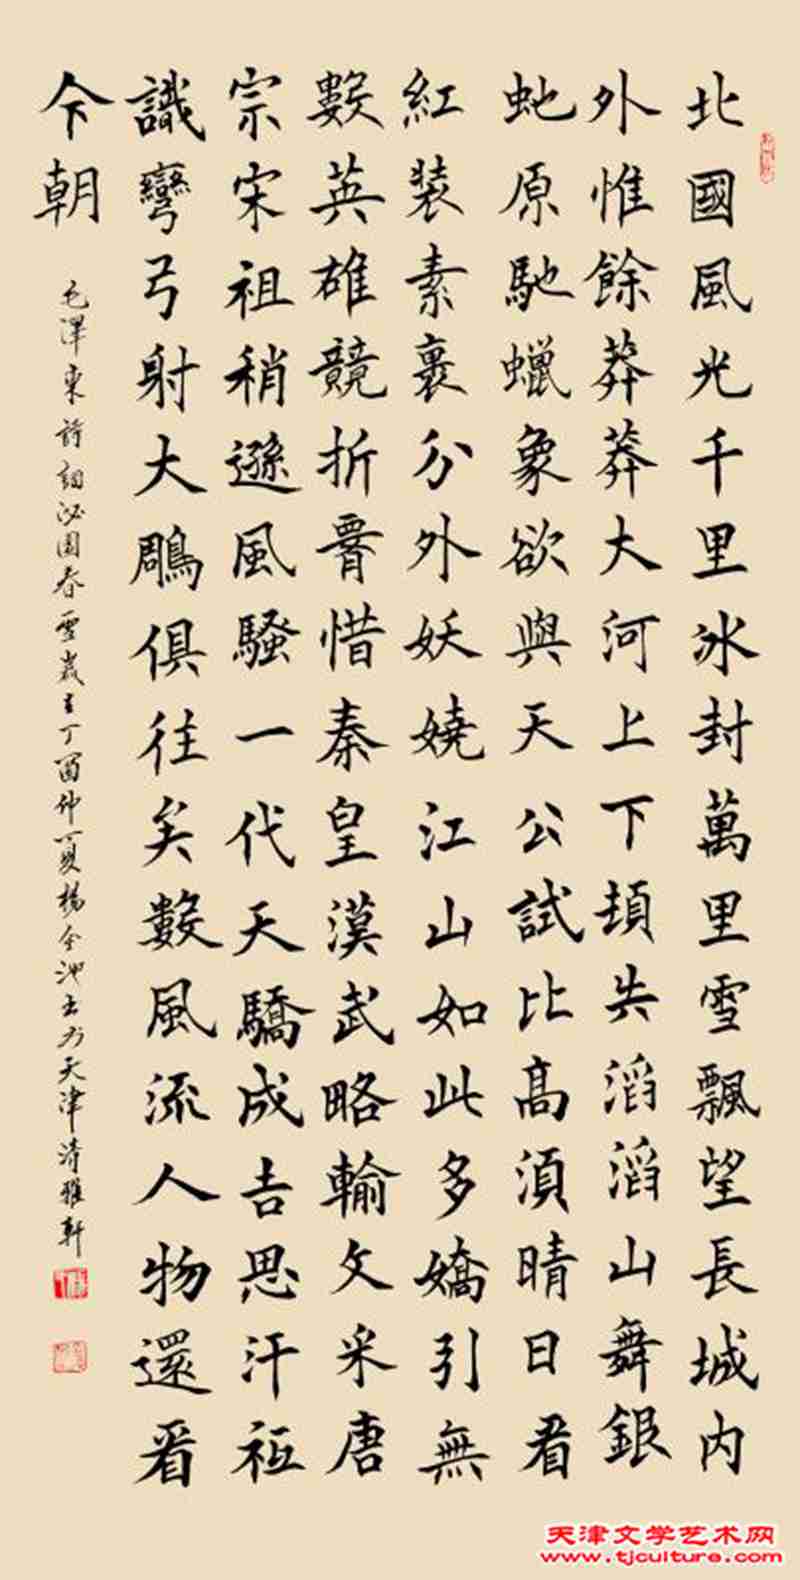 北國風光千里冰封萬里雪飄望長城内
外惟餘莽莽大河上下頓失滔滔山舞銀
虵原馳蠟象欲與天公試比高須晴日看
紅装素裹分外妖嬈江山如此多嬌引無
數英雄競折腰惜秦皇漢武略輸文采唐
宗宋祖稍遜風騷一代天驕成吉思汗祗
識彎弓射大鵰俱往矣數風流人物還看
今朝
毛澤東詩詞沁園春雪歲在丁酉仲夏楊全池書於天津清雅軒
天津文学艺术网
www.tjculture.com